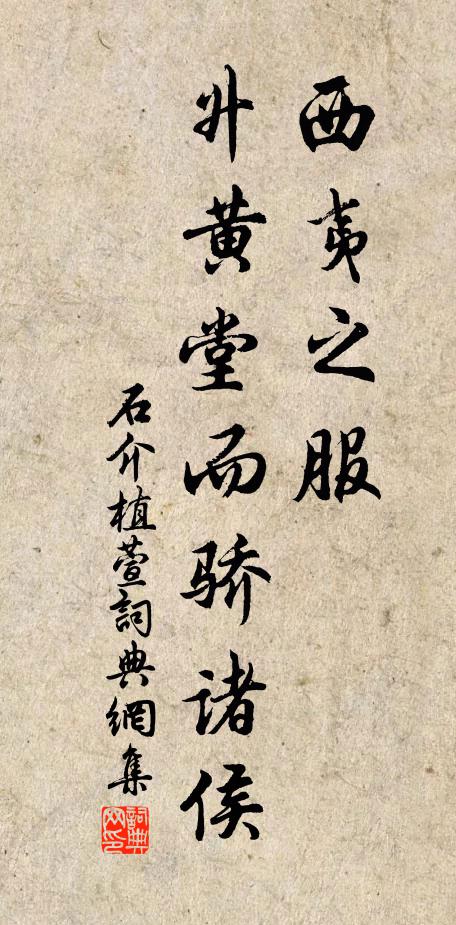 西夷之服
升黄堂而骄诸侯
石介植萱詞典網集
詞典
网印